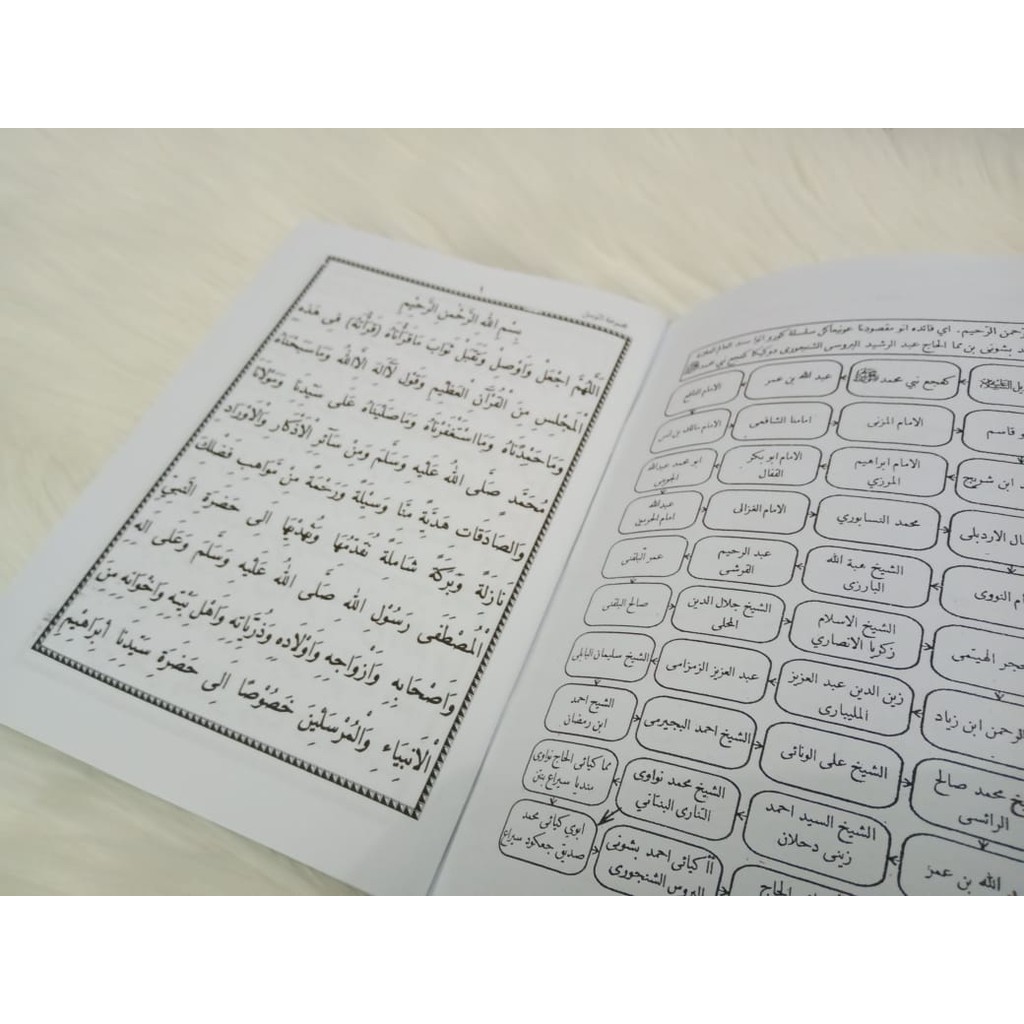 ١
بِسْمِ اللهِ الرَّحْمٰنِ الرَّحِيْمِ
اَللّٰهُمَّ اجْعَلْ وَاَوْصِلْ وَتَقَبَّلْ ثَوَابَ مَاقَرَأْنَاهُ (قَرَأْتُهُ) فِى هٰذِهِ
الْمَجْلِسِ مِنَ الْقُرْاٰنِ الْعَظِيْمِ وَقَوْلِ لَآاِلٰهَ اِلَّااللهُ وَمَاسَبَّحْنَاهُ
وَمَاحَمِدْنَاهُ وَمَااسْتَغْفَرْنَاهُ وَمَاصَلَّيْنَاهُ عَلَى سَيِّدِنَا وَمَوْلَانَا
مُحَمَّدٍ صَلَّى اللهُ عَلَيْهِ وَسَلَّمَ وَمِنْ سَآئِرِ الْاَذْكَارِ وَالْاَوْرَادِ
وَالصَّادَقَاتِ هَدِيَّةً مِنَّا وَسِيْلَةً وَرَحْمَةً مِنْ مَوَاهِبِ فَضْلِكَ
نَازِلَةً وَبَرَكَةً شَامِلَةً نُقَدِّمُهَا وَنُهْدِيْهَا اِلَى حَضْرَةِ النَّبِيِّ
الْمُصْطَفٰى رَسُوْلِ اللهِ صَلَّى اللهُ عَلَيْهِ وَسَلَّمَ وَعَلَى اٰلِهِ
وَاَصْحَابِهِ وَاَزْوَاجِهِ وَاَوْلَادِهِ وَذُرِّيَاتِهِ وَاَهْلِ بَيْتِهِ وَاِخْوَانِهِ مِنَ
الْاَنْبِيَاءِ وَالْمُرْسَلِيْنَ خُصُوْصًا اِلَى حَضْرَةِ سَيِّدِنَا اِبْرَاهِيْمِ
رحمن الرّحيم. اي فائده انو مقصودنا
بشونى بن مما الحاج عبد الرشيد البروسى الشنجورى
كنجع نبي محمد ﷺ
عبد الله بن عمر
الامام النافع
و قاسم
الامام المزنى
امامنا الشافعى
الامام مالك بن انس
د ابن شريج
الامام ابراهيم
المروزي
الامام ابو بكر
القفال
ابو محمد عبدالله
الجوينى
ال الاردبلى
محمد النسابورى
الامام الغزالى
عبدالله
امام الحرمين
ام النووى
الشيخ هبة الله
البارزى
عبد الرحيم
القرشى
عمر البلقنى
حجر الهيتمى
الشيخ الاسلام
زكريا الانصاري
الشيخ جلال الدين
المحلى
صالح البلقنى
الرحمن ابن زياد
زين الدين عبد العزيز
المليبارى
عبد العزيز الزمزامى
الشيخ سليمان البابلى
خ محمد صالح
الرائسى
الشيخ على الونائى
الشيخ احمد البجيرمى
الشيخ احمد
ابن رمضانى
د الله بن عمر
الشيخ السيد احمد
زينى دحلان
الشيخ محمد نواوى
التنارى البنتاني
مما كيائى الحاج نواوى
منديا سيراغ بنتن
الحاج
اا كيائى احمد بشونى
البروس الشنجورى
ابوي كيائى محمد
صديق جعكود سيراغ